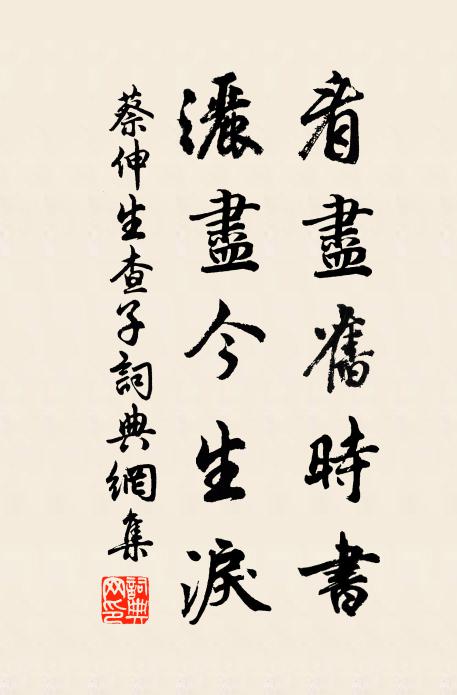 看盡舊時書
灑盡今生淚
蔡伸生查子詞典網集
詞典網印